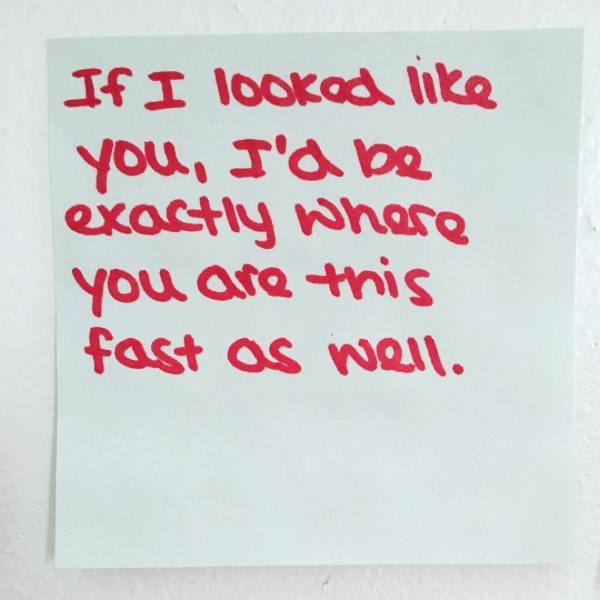 If I looked like
you, I'd be
exactly where
you are this
fast as well.